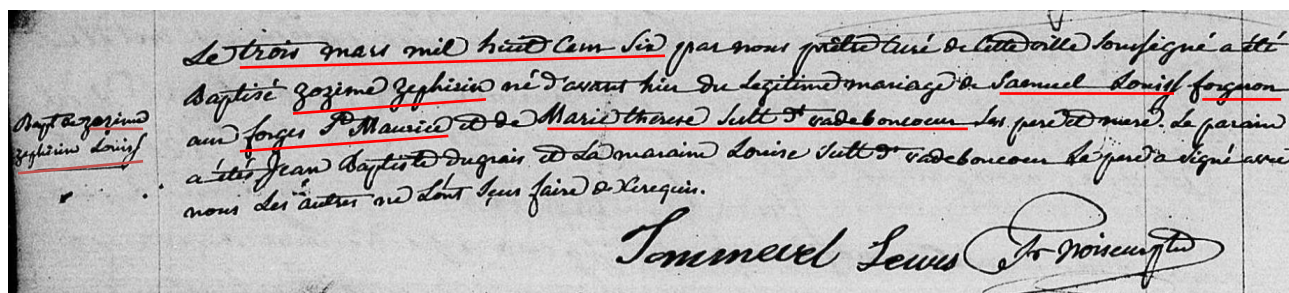 Le trois mars mil huit Cent Six par nous prêtre Curé de Cette ville Soussigné a été
Baptisé Zozime Zephirin né d'avant hier du Legitime mariage de Samuel Louiss forgeron
Bapt de Zozime
aux forges St Maurice et de Marie therese Sutt dt vadeboncoeur Ses pere et mere. Le parain
Zephirin Louiss
a étés Jean Baptiste dugrais et La maraine Louise Sutt dt vadeboncoeur Le pere a Signé avec
nous Les autres ne L'ont Sçus faire de Ce requis.
Sommevel Lewis fr Noiseux ptr